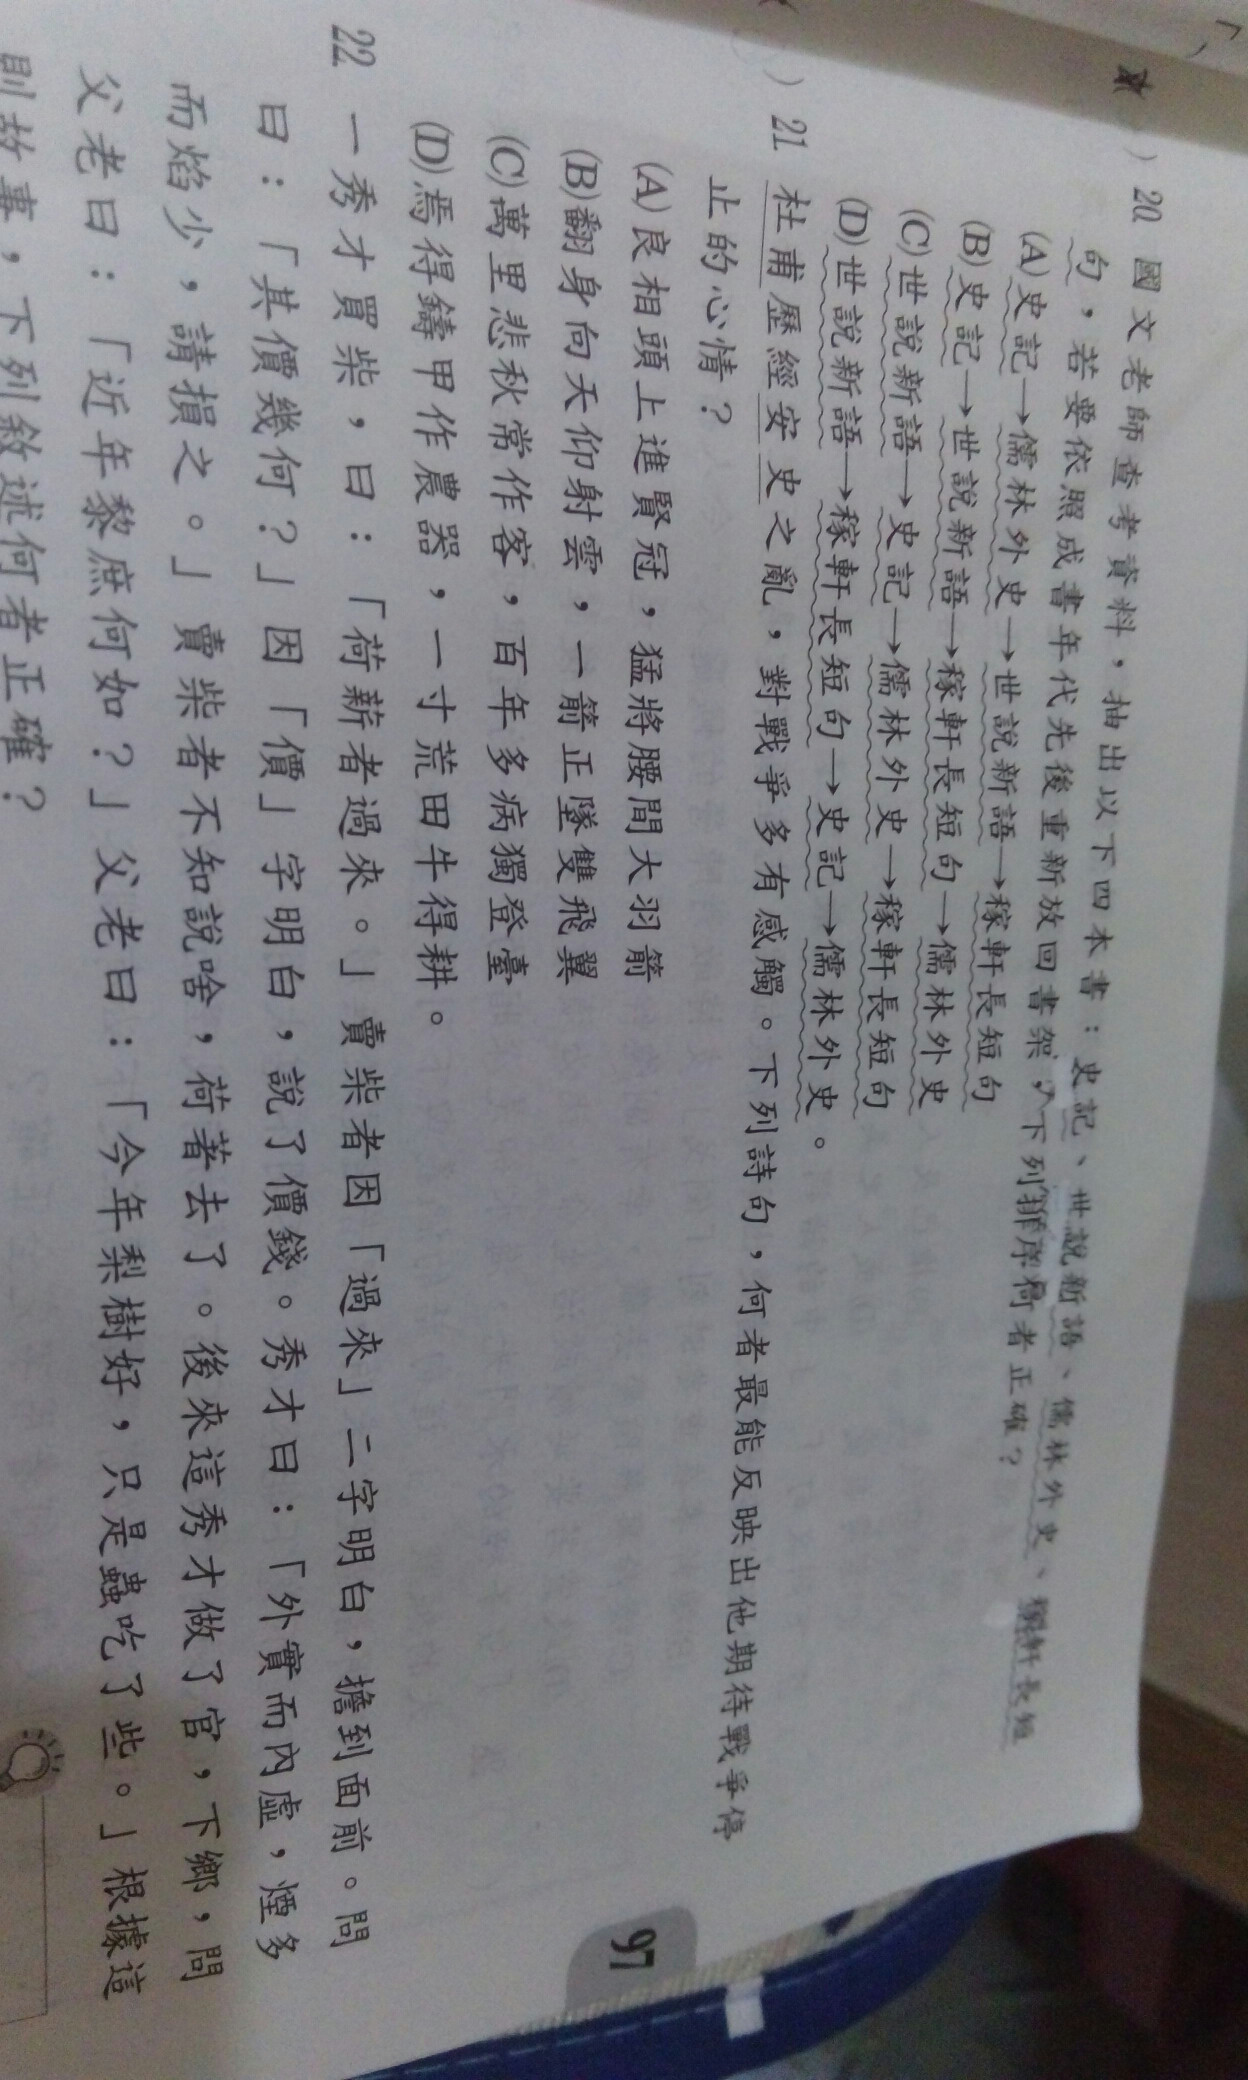 20 國文老師查考資料，抽出以下四本書：史記、世說新語、儒林外史、稼軒長短
句，若要依照成書年代先後重新放回書架，下列排序何者正確？
(A)史記→儒林外史→世說新語→稼軒長短句
(B)史記→世說新語→稼軒長短句→儒林外史
(C)世說新語→史記→儒林外史→稼軒長短句
(D)世說新語→稼軒長短句→史記→儒林外史。
21 杜甫歷經安史之亂，對戰爭多有感觸。下列詩句，何者最能反映出他期待戰爭停
止的心情？
(A)良相頭上進賢冠，猛將腰間大羽箭
(B)翻身向天仰射雲，一箭正墜雙飛翼
(C)萬里悲秋常作客，百年多病獨登臺
(D)焉得鑄甲作農器，一寸荒田牛得耕。
22 一秀才買柴，曰：「荷薪者過來。」賣柴者因「過來」二字明白，擔到面前。問
曰：「其價幾何？」因「價」字明白，說了價錢。秀才曰：「外實而內虛，煙多
而焰少，請損之。」賣柴者不知說啥，荷著去了。後來這秀才做了官，下鄉，問
父老曰：「近年黎庶何如？」父老曰：「今年梨樹好，只是蟲吃了些。」根據這
則故事，下列敘述何者正確？
97